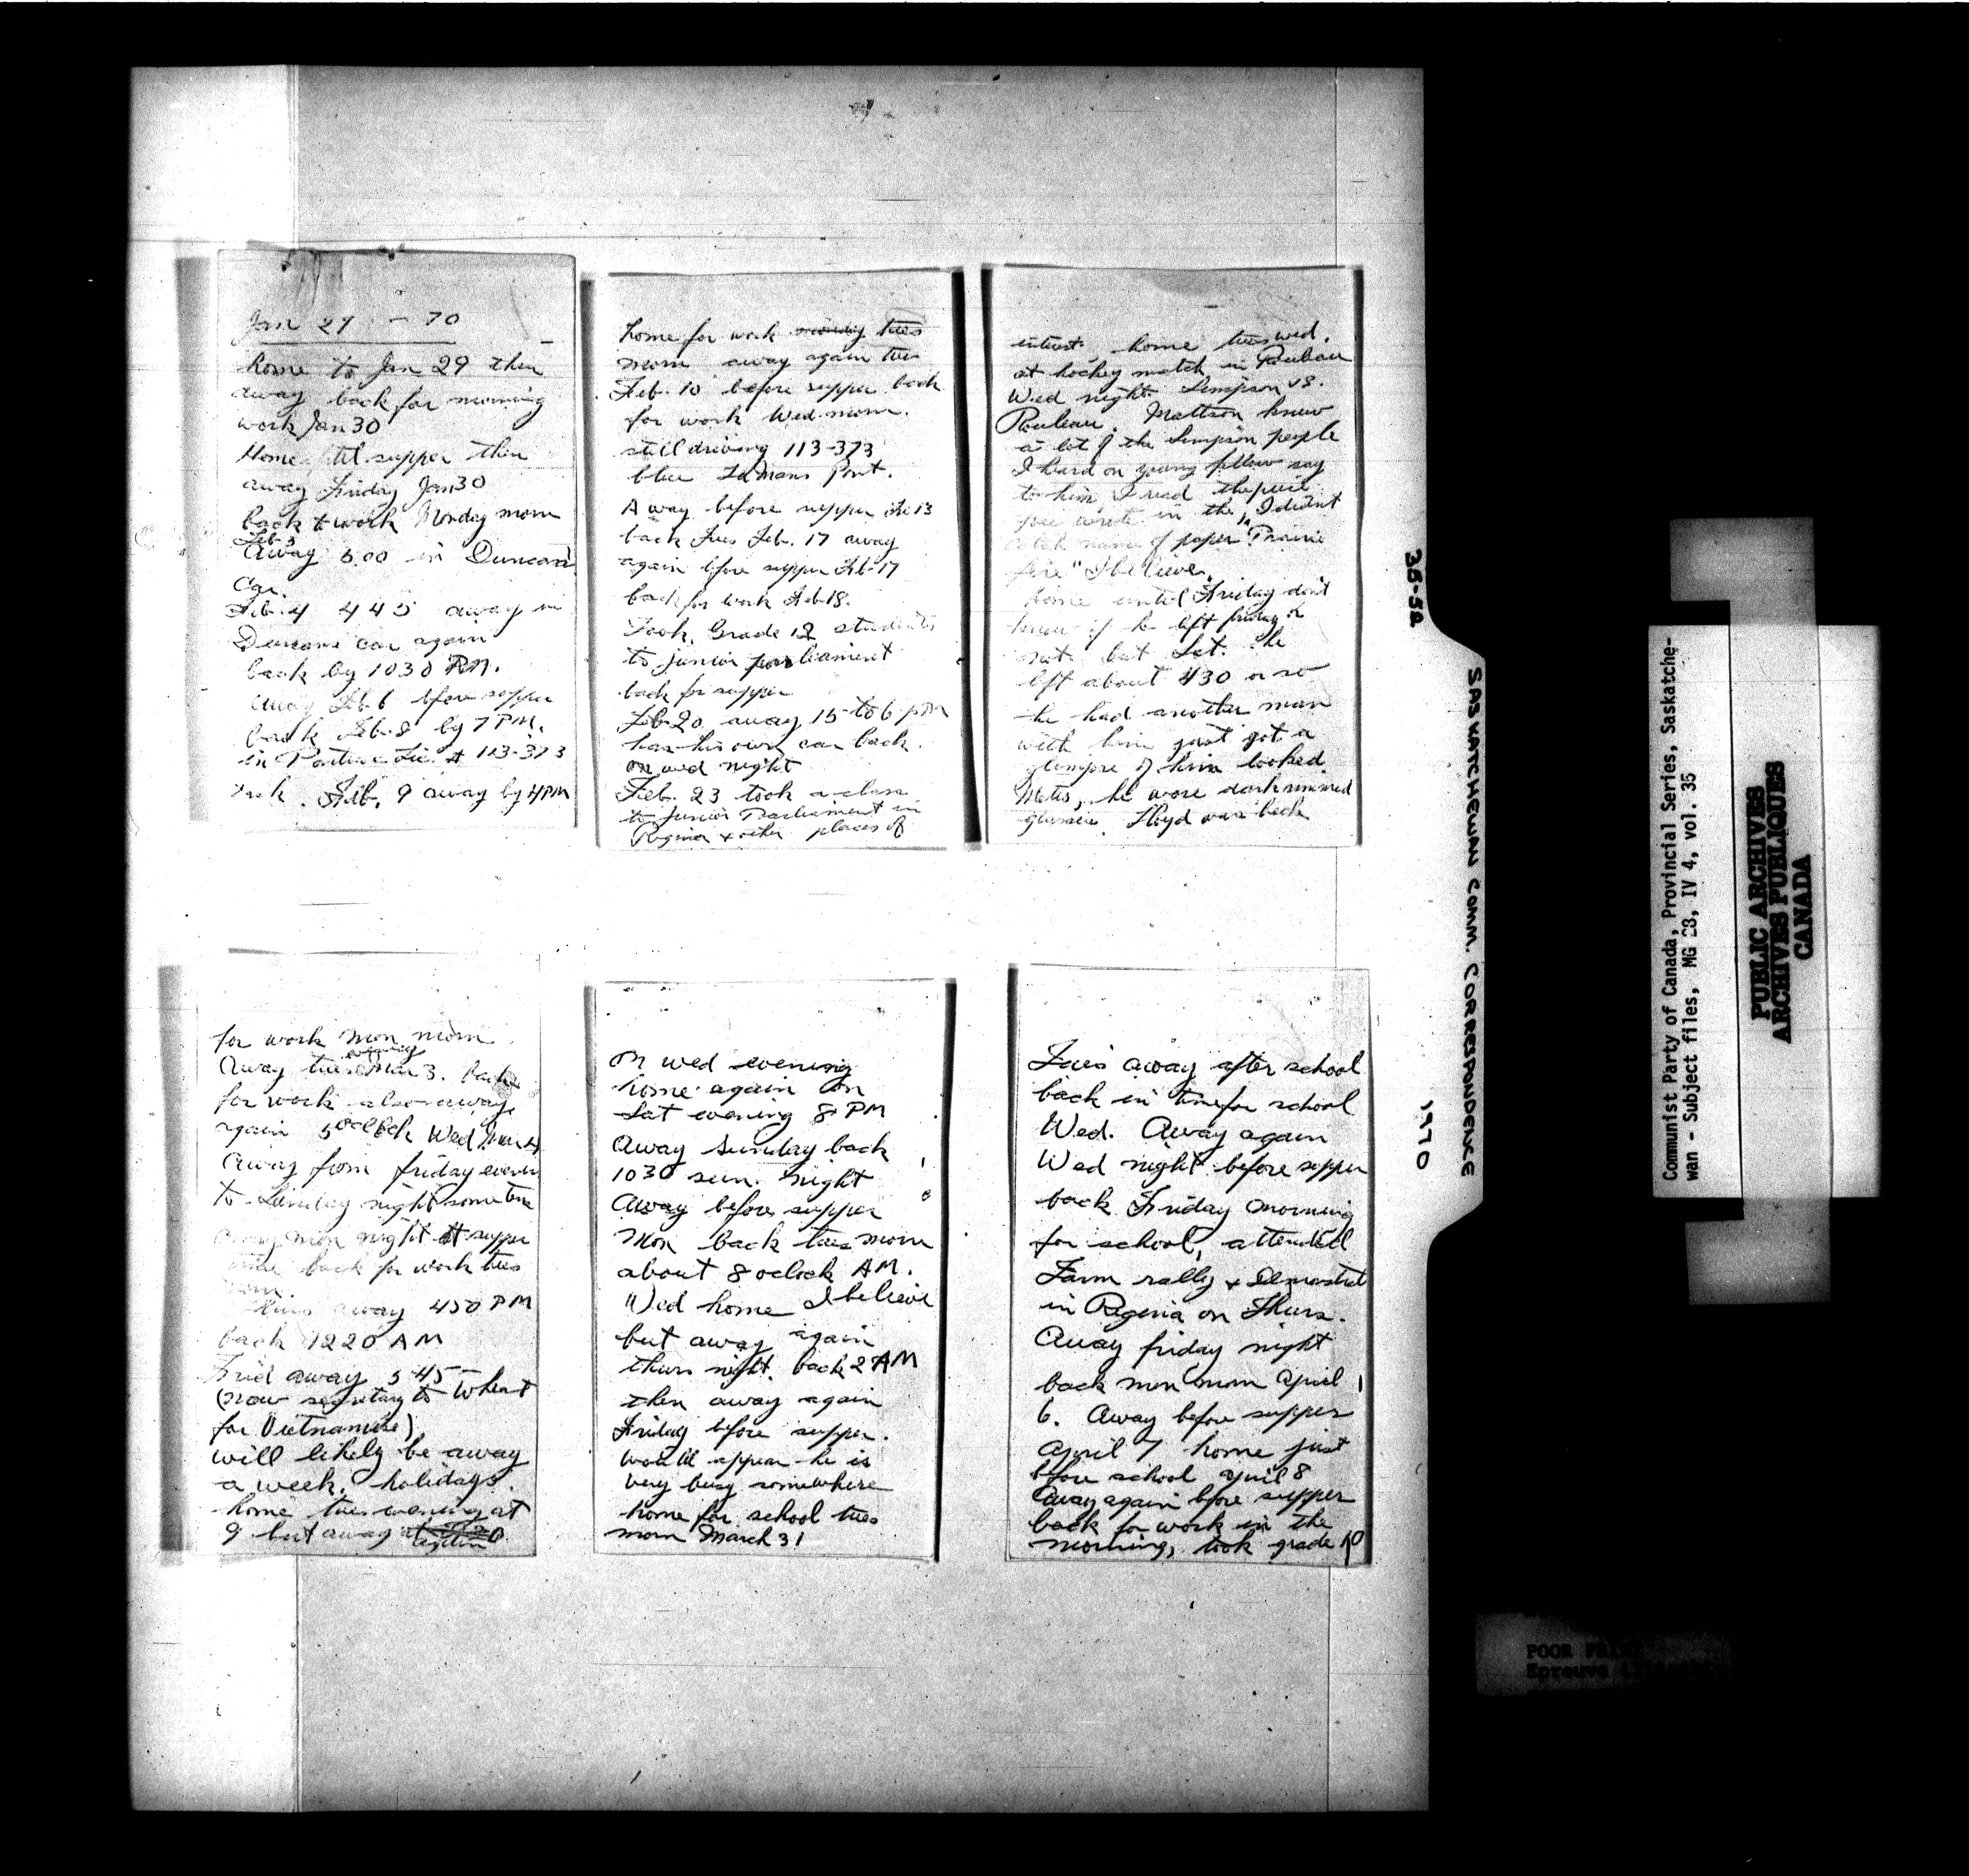 Jan 27 - 70
home to Jan 29 then
away back for morning
work Jan 30
Home til supper then
away Friday Jan 30
back to work Monday morn
Feb 3
Away 5.00 in Duncans
Car.
Feb. 4 445 away in
Duncans car again
back by 1030 P.M.
away Feb 6 before supper
back Feb. 8 by 7 PM.
in Pontiac Lic # 113-373
Feb. 9 away by 4PM
home for work monday tues
morn away again tues
Feb. 10 before supper back
for work Wed. morn.
still driving 113-373
blue LaMans Pont.
Away before supper Fe 13
back Tues Feb. 17 away
again before supper Feb 17
back for work Feb 18.
Took Grade 12 students
to junior parliament
back for supper
Feb 20 away 15 to 6 pM
has his own car back.
on wed night
Feb. 23 took a class
to Junior Parliament in
Regina & other places of
interest, home tues wed.
at hockey match in Rouleau
Wed night. Simpson vs.
Rouleau. Mattson knew
a lot of the Simpson people
I heard on young fellow say
to him, I read the piece
you wrote in the, I didnt
catch name of paper "Prairie
fire" I believe.
home until Friday don't
know if he left friday or
not but Sat. he
left about 430 or so
he had another man
with him just got a
glimpse of him looked
Metis, he wore dark rimmed
glasses. Lloyd was back
for work mon morn.
evening
Away tues Mar 3. back
for work also away
again 5 oclock Wed Mar 4
Away from friday even
to Sunday night some time
away mon night at supper
time back for work tues
morn.
away 450 PM
back 1220 AM
Frid away 545
(now secretary to Wheat
for Vietnamese)
will likely be away
a week. holidays.
home tues evening at
9 but away again
on wed evening
home again on
Sat evening 8 PM
Away Sunday back
1030 sun. night
Away before supper
Mon back tues morn
about 8 oclock AM.
Wed home I believe
but away again
thurs night. back 2 AM
then away again
Friday before supper.
would appear he is
very busy somewhere
home for school tues
morn March 31
Tues away after school
back in time for school
Wed. Away again
Wed night before supper
back Friday morning
for school, attended
Farm rally & Demonstrat
in Regina on Thurs.
Away friday night
back mon morn April
6. Away before supper
April 7 home just
before school April 8
Away again before supper
back for work in the
morning, took grade 10
35-52
SASKATCHEWAN COMM. CORRESPONDENCE 1970
Communist Party of Canada, Provincial Series, Saskatche-
wan - Subject files, MG 28, IV 4, vol. 35
PUBLIC ARCHIVES
ARCHIVES PUBLIQUES
CANADA
POOR
Epreuve